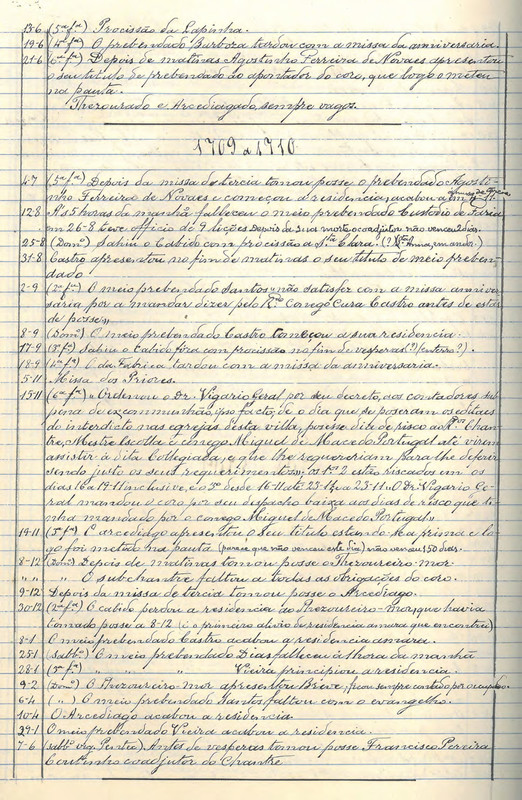 13-6 (5ª fª) Procissão da Lapinha.
19-6 (4ª fª) O prebendado Barboza tardou com a missa da anniversaria.
21-6 (6ª fª) Depois de matinas Agostinho Ferreira de Novaes apresentou
o seu titulo de prebendado ao apontador do coro, que logo o meteu
na pauta.
Thezourado e Arcediagado, sempre vagos.
1709 a 1710
4-7 (5ª fª) Depois da missa de tercia tomou posse o prebendado Agosti-
nho Ferreira de Novaes e começou a residencia; acabou a
12-8 Ás 5 horas da manhã falleceu o meio prebendado Custodio de Faria
em 26-8 teve officio de 9 lições Depois da sua morte o coadjutor não venceu 2 dias.
25-8 (Domº) Sahiu o Cabido com procissão a Stª Clara. (?)
31-8 Castro apresentou no fim de matinas o seu titulo de meio preben-
dado
2-9 (2ª fª) O meio prebendado Santos "não satisfez com a missa anniver
saria por a mandar dizer pelo Rdº Conego Cura Castro antes de estar
de posse"
8-9 (Domº) O meio prebendado Castro começou a sua residencia.
17-9 (3ª fª) Sahiu o Cabido fora com procissão no fim de vesperas (?) (enterro?).
18-9 (4ª fª) O da Fabrica tardou com a missa da anniversaria.
5-11 Missa dos Priores.
15-11 (6ª fª) "Ordenou o Dr. Vigario Geral por seu decreto, aos contadores sub
pena de excommunhão, ipso facto, de o dia que se poseram os editaes
de interdicto nas egrejas desta villa, posesse dito de risco ao Rdos Chan-
tre, Mestre Escolla e conego Miguel de Macedo Portugal até virem
assistir á dita Collegiada, e que lhe requereriam para lhe deferir
sendo justo os seus requerimentos"; os 1os 2 estão riscados em os
dias 16 a 19-11 inclusive, e o 3º desde 16-11 até 23-12 a 23-11 "O Dr. Vigario Ge-
ral mandou o coro por seu despacho baixa aos dias de risco que ti-
nha mandado por o conego Miguel de Macedo Portugal"
19-11 (3ª fª) O arcediago apresentou o seu titulo estando-se a prima e lo-
go foi metido na pauta (parece que não venceu este dia) não venceu 150 dias.
8-12 (Domº) Depois de matinas tomou posse o Thezoureiro-mor
" " " O subchantre faltou a todas as obrigações do coro.
9-12 Depois da missa de tercia tomou posse o Arcediago.
30-12 (2ª fª) O cabido perdou a residencia ao Thezoureiro-mor, que havia
tomado posse a 8-12 (é o primeiro alivio de residencia amara que encontrei)
8-1 O meio prebendado Castro acabou a residencia amara.
25-1 (sabbº) O meio prebendado Dias falleceu á 1 hora da manhã
28-1 (3ª fª) " " " Vieira principiou a residencia.
9-2 (Domº) O Thezoureiro-mor apresentou Breve; ficou sempre contado por occupado.
6-4 ( " ) O meio prebendado Santos faltou com o evangelho.
10-4 O Arcediago acabou a residencia.
29-1 O meio prebendado Vieira acabou a residencia.
7-6 (sabbº vig. Pentec.) Antes de vesperas tomou posse Francisco Pereira
Coutinho coadjutor do Chantre